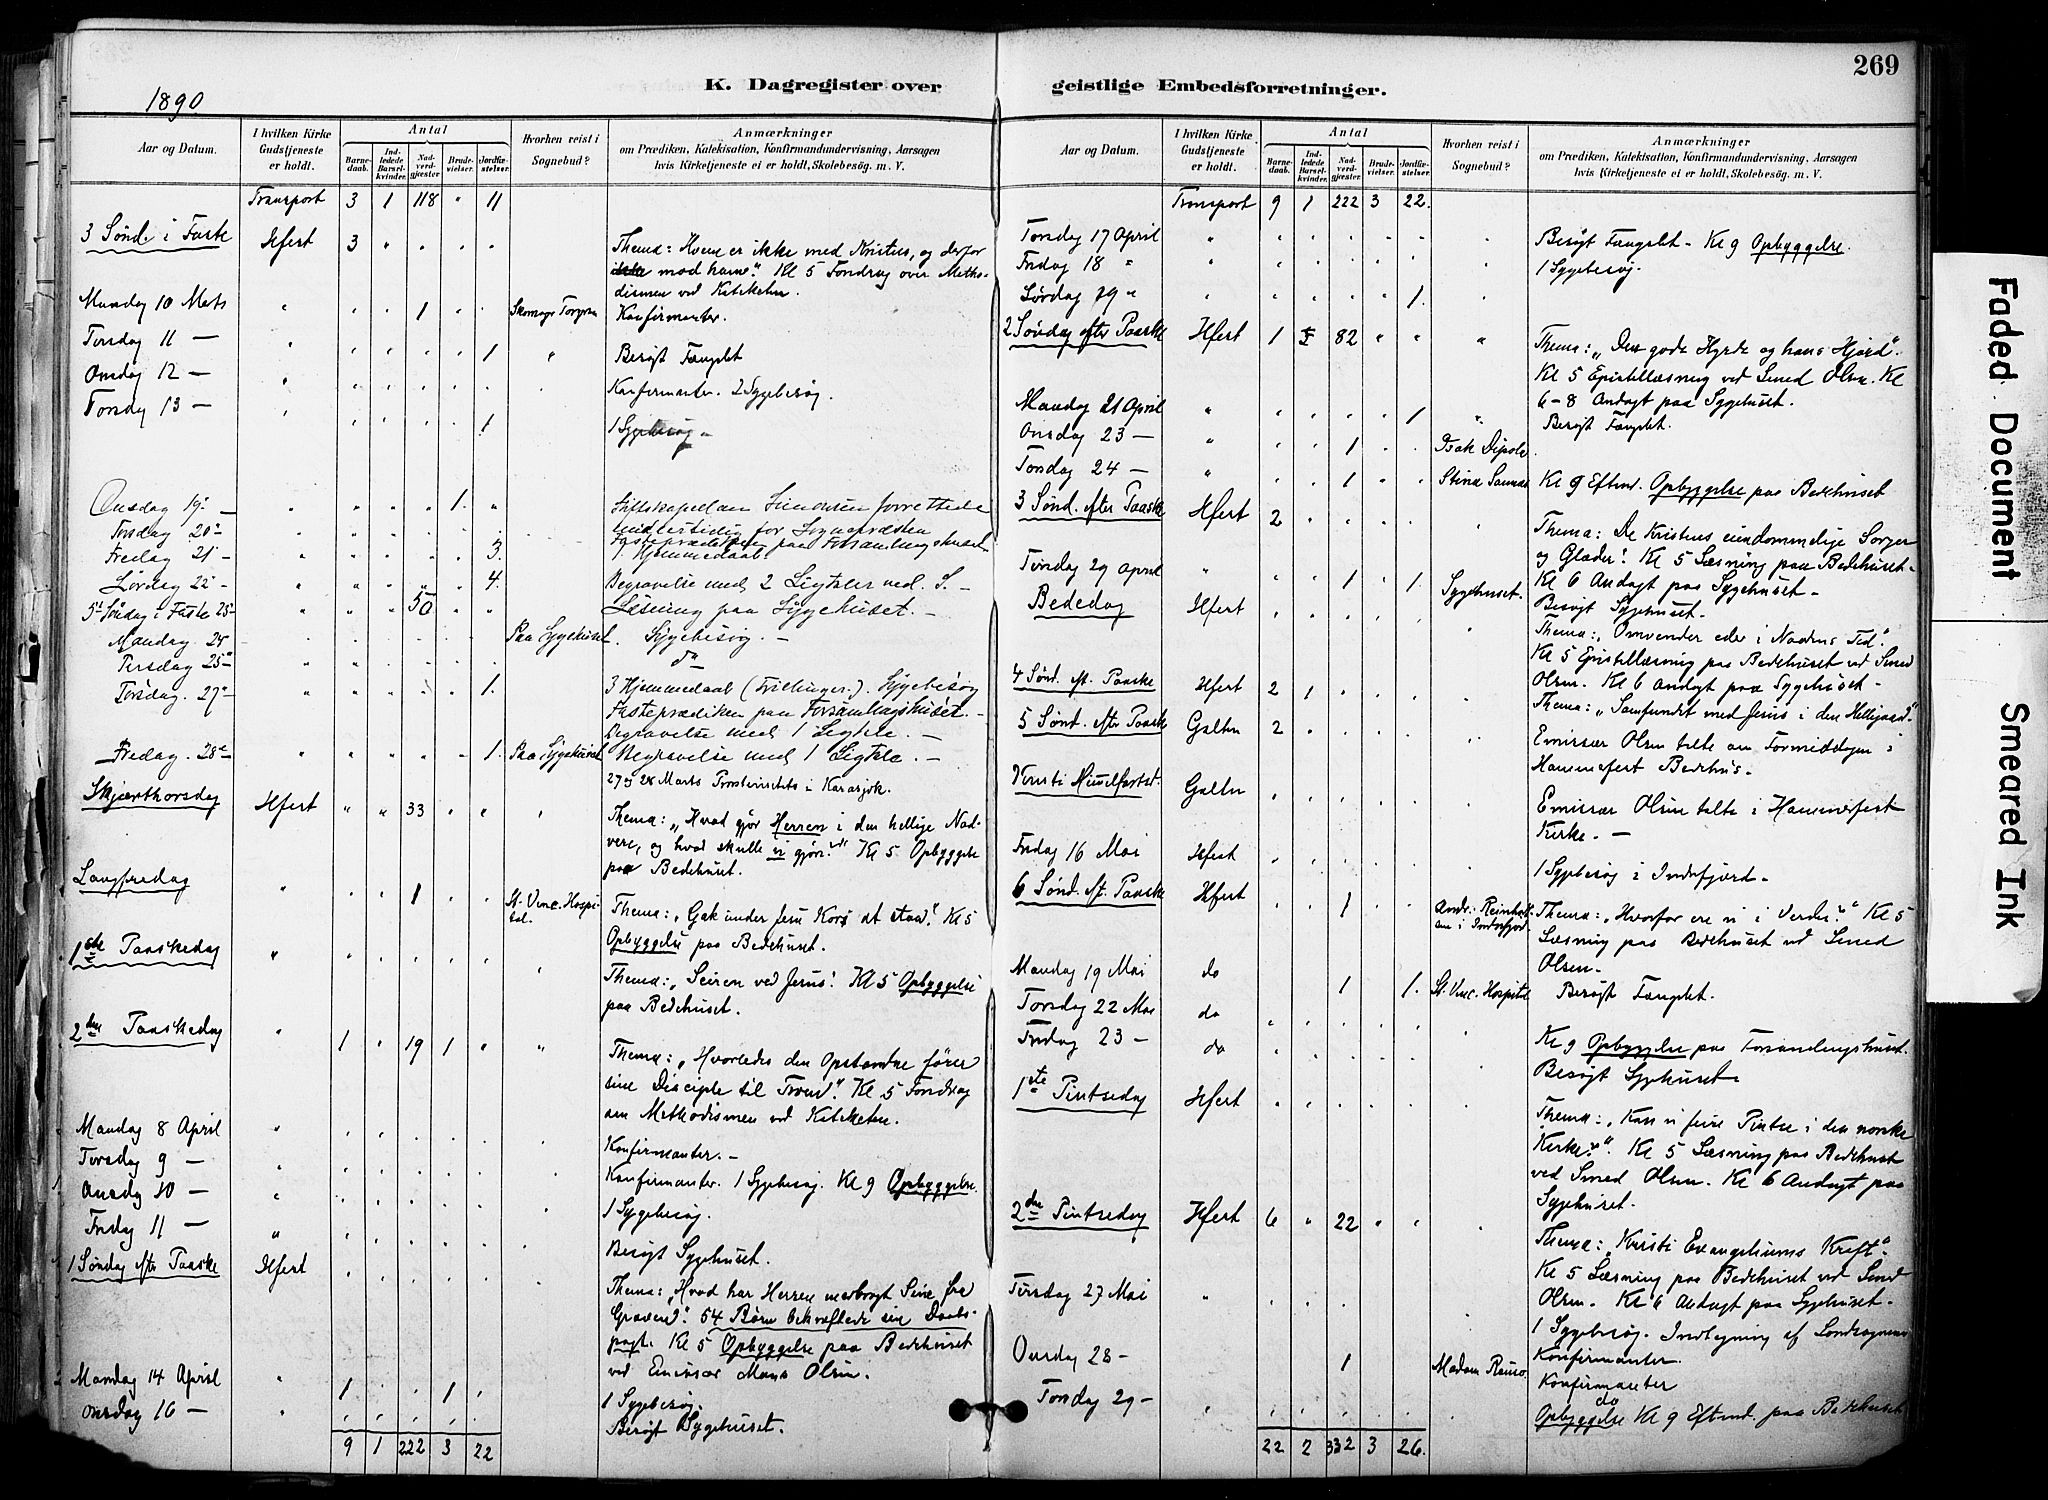 269
K. Dagregister over geistlige Embedsforretninger.
1890.
Aar og Datum.
I hvilken Kirke Gudstjeneste er holdt.
Antal
Barnedaab.
Indledede Barselkvinder.
Nadverdgjæster
Brudevielser.
Jordfæstelser.
Hvorhen reist i Sognebud?
Anmærkninger
om Prædiken, Katekisation, Konfirmandundervisning, Aarsagen
hvis Kirketjeneste ei er holdt, Skolebesøg. m. V.
Transport 3 1 118 " 11
3 Sønd. i Faste Hfert 3 " " " " Thema: Hvem er ikke med Kristus, og derfor
mod ham". Kl 5 Foredrag over Metho-
dismen ved Kateketen.
Mandag 10 Mats " " " 1 " " Konfirmanter.
Tirsdag 11 — " " " " " 1 " Besøgt Fængslet
Onsdag 12 — " Konfirmanter. 2 Sygebesøg.
Torsdag 13 — " " " " " 1 1 Sygebesøg
Onsdag 19 — " " " " 1. " Stiftskapellan Simonsen forrettede
midlertidig for Sognepresten
Torsdag 20 — Fasteprædiken paa Forsamlingshuset
Fredag 21 — " " " " " 3. 1 Hjemmedaab.
Lørdag 22 — " " " " " 4. Begravelse med 2 Ligtaler ved. S. —
5t Søndag i Faste 23 — " " " 50 " " Læsning paa Sygehuset. —
Mandag. 24 Paa Sygehuset. Sygebesøg. —
Tirsdag 25 — do
Torsdag. 27 — " " " " " 1. 3 Hjemmedaab (Trillinger.). Sygebesøg
Fasteprædiken paa Forsamlingshuset. —
Begravelse med 1 Ligtale. —
Fredag. 28 — " " " " " 1. Paa Sygehuset Begravelse med 1 Ligtale. —
27 og 28 Marts Provstevisitats i Karasjok.
Skjærthorsdag Hfert " " 33 " " Thema: „Hvad gjør Herren i den hellige Nad-
vere, og hvad skulle vi gjøre?" Kl 5 Opbyggelse
paa Bedehuset.
Langfredag " " " 1 " " St. Vinc. Hospi-
tal. Thema: „Gak under Jesu Kors at staa". Kl 5
Opbyggelse paa Bedehuset.
1ste Paaskedag " Thema: „Seiren ved Jesus! Kl 5 Opbyggelse
paa Bedehuset.
2den Paaskedag " 1 " 19 1 " " Thema: „Hvorledes den Opstandne fører
sine Disciple til Troen". Kl 5 Foredrag
om Methodismen ved Kateketen.
Mandag 8 April " Konfirmanter. —
Tirsdag 9 — Konfirmanter. 1 Sygebesøg. Kl 9 Opbyggelse.
Onsdag 10 — " 1 Sygebesøg.
Fredag 11 — " Besøgt Sygehuset.
1 Søndag efter Paaske Hfert Thema: „Hvad har Herren medbragt Sine fra
Graven?" 54 Børn bekræftede sin Daabs-
pagt. Kl 5 Opbyggelse paa Bedehuset
ved Emissær Mons Olsen.
Mandag 14 April " 1 " " 1 " 1 Sygebesøg.
Onsdag 16 — " Besøgt Sygehuset.
9 1 222 3 22
Aar og Datum.
I hvilken Kirke Gudstjeneste er holdt.
Antal
Barnedaab.
Indledede Barselkvinder.
Nadverdgjæster
Brudevielser.
Jordfæstelser.
Hvorhen reist i Sognebud?
Anmærkninger
om Prædiken, Katekisation, Konfirmandundervisning, Aarsagen
hvis Kirketjeneste ei er holdt, Skolebesøg. m. V.
Transport 9 1 222 3 22.
Torsdag 17 April " Besøgt Fængslet — Kl 9 Opbyggelse.
Fredag 18 " " 1 Sygebesøg.
Lørdag 19 " " " " " " 1.
2 Søndag efter Paaske Hfert 1 82 " " " Thema: „Den gode Hyrde og hans Hjord".
Kl 5 Epistellæsning ved Smed Olsen. Kl
6-8 Andagt paa Sygehuset.
Mandag 21 April " " " " " 1 " Besøgt Fængslet.
Onsdag 23 — " " " 1 " " Isak
Torsdag 24 — " " " 1 " " Stina Kl 9 Eftmd. Opbyggelse paa Bedehuset
3 Sønd. efter Paaske Hfert 2 Thema: De Kristnes eiendommelige Sorger
og Glæder! Kl 5 Læsning paa Bedehuset —
Kl 6 Andagt paa Sygehuset —
Tirsdag 29 April " " " 1 " 1. Sygehuset. Besøgt Sygehuset.
Bededag Hfert Thema: „Omvender eder i Naadens Tid".
Kl 5 Epistellæsning paa Bedehuset ved Smed
Olsen. Kl 6 Andagt paa Sygehuset —
4 Sønd. eft. Paaske Hfert 2 1 Thema: „Samfundet med Jesus i den Helligaand"
5 Sønd. efter Paaske Galten 2 Emissær Olsen talte om Formiddagen i
Hammerfest Bedehus.
Kristi Himmelfartsd. Galten Emissær Olsen talte i Hammerfest
Kirke. —
Fredag 16 Mai Hfert 1 Sygebesøg i Indrefjord —
6 Sønd. eft. Paaske Hfert " " 1 Thema: „Hvorfor ere vi i Verden?" Kl 5
Læsning paa Bedehuset ved Smed
Olsen —
Mandag 19 Mai do " " 1 " 1. St. Vinc. Hospital Besøgt Fængslet.
Torsdag 22 Mai do Kl 9 Opbyggelse paa Forsamlingshuset.
Fredag 23 — do Besøgt Sygehuset
1ste Pintsedag Hfert Thema: „Kan vi feire Pintse i den norske
Kirke?". Kl 5 Læsning paa Bedehuset
ved Smed Olsen. Kl 6 Andagt paa
Sygehuset.
2den Pintsedag Hfert 6 " 22 " " Thema: „Kristi Evangeliums Kraft".
Kl 5 Læsning paa Bedehuset ved Smed
Olsen. Kl 6 Andagt paa Sygehuset —
Tirsdag 27 Mai " 1 Sygebesøg. Indtegning af Landsognets
Konfirmanter.
Onsdag 28 — 1 Madam Konfirmanter
Torsdag 29 — " do
Opbyggelse Kl 9 Eftmd. paa Bedehuset
22 2 332 3 26.
Faded Document
Smeared Ink